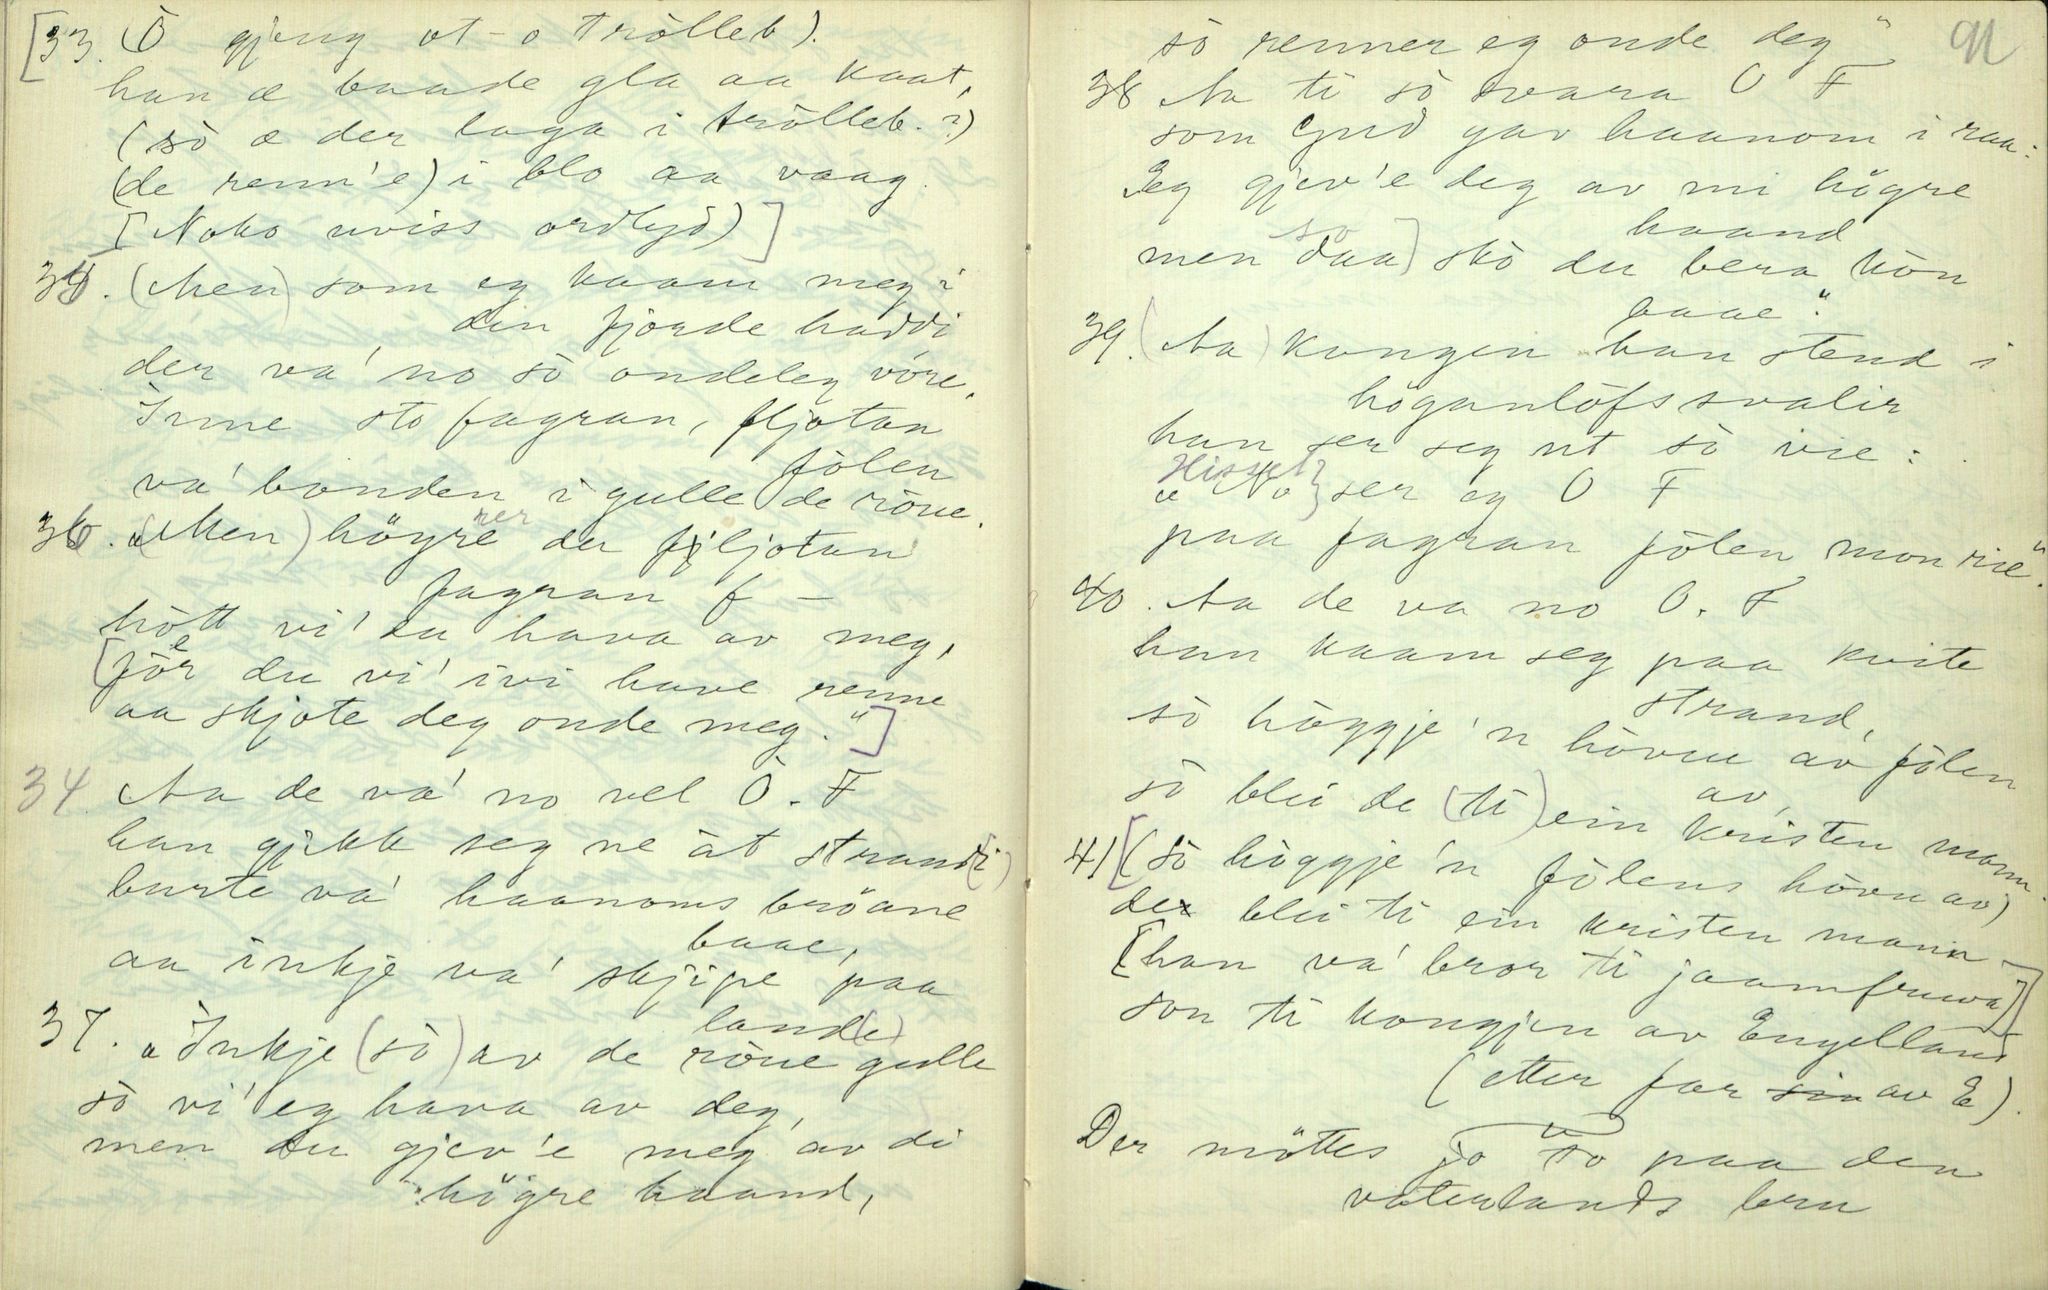 [33. (Ò gjeng ut-o trölleb).
han æ baade gla aa kaat,
(sò æ der laga i trölleb.?)
(de renn'e) i blo aa vaag.
[Noko uviss ordlyd)]
34. (Men) som eg kaam meg i
den fjorde haddi
der va' no sò ondeleg vóre,
Inne sto fagran, fljotan
fòlen
va' bonden i gulle de röue.
36. „(Men) högrer du fljotan
fagran f –
hòtt vi' du hava av meg,
[för du vi' ivi have renne
aa skjote deg onde meg."]
34 Aa de va' no vel Ò. F
han gjekk seg ne åt strand(i)
burte va' haanoms bröane
baae,
aa inkje va' skjipe paa
land(e)
37. „Inkje (sò) av de röue gulle
sò vi' eg hava av deg,
men du gjev'e meg av di
högre haand,
91
sò renner eg onde deg"
38 Aa ti sò svara O F
som Gud gav haanom i raa:
Eg gjev'e deg av mi högre
haand
so
men daa] skò du bera kòn
baae."
39. (Aa) kongen han stend i
höganlofssvalir
han ser seg ut sò vie:
Hisset
„No} ser eg O F
paa fagran fòlen mon rie".
40. Aa de va no O. F
han kaam seg paa kvite
strand,
sò höggje'n hövue av fòlen
av,
sò blei de (ti) ein kristen mann.
41 [(sò höggje'n fòlens hövu av)
de blei ti ein kristen mann
[han va' bror ti jaamfruva]]
son ti kongjen av Engelland
(etter far sin av E).
Der möttes jo to paa den
vaterlands bru